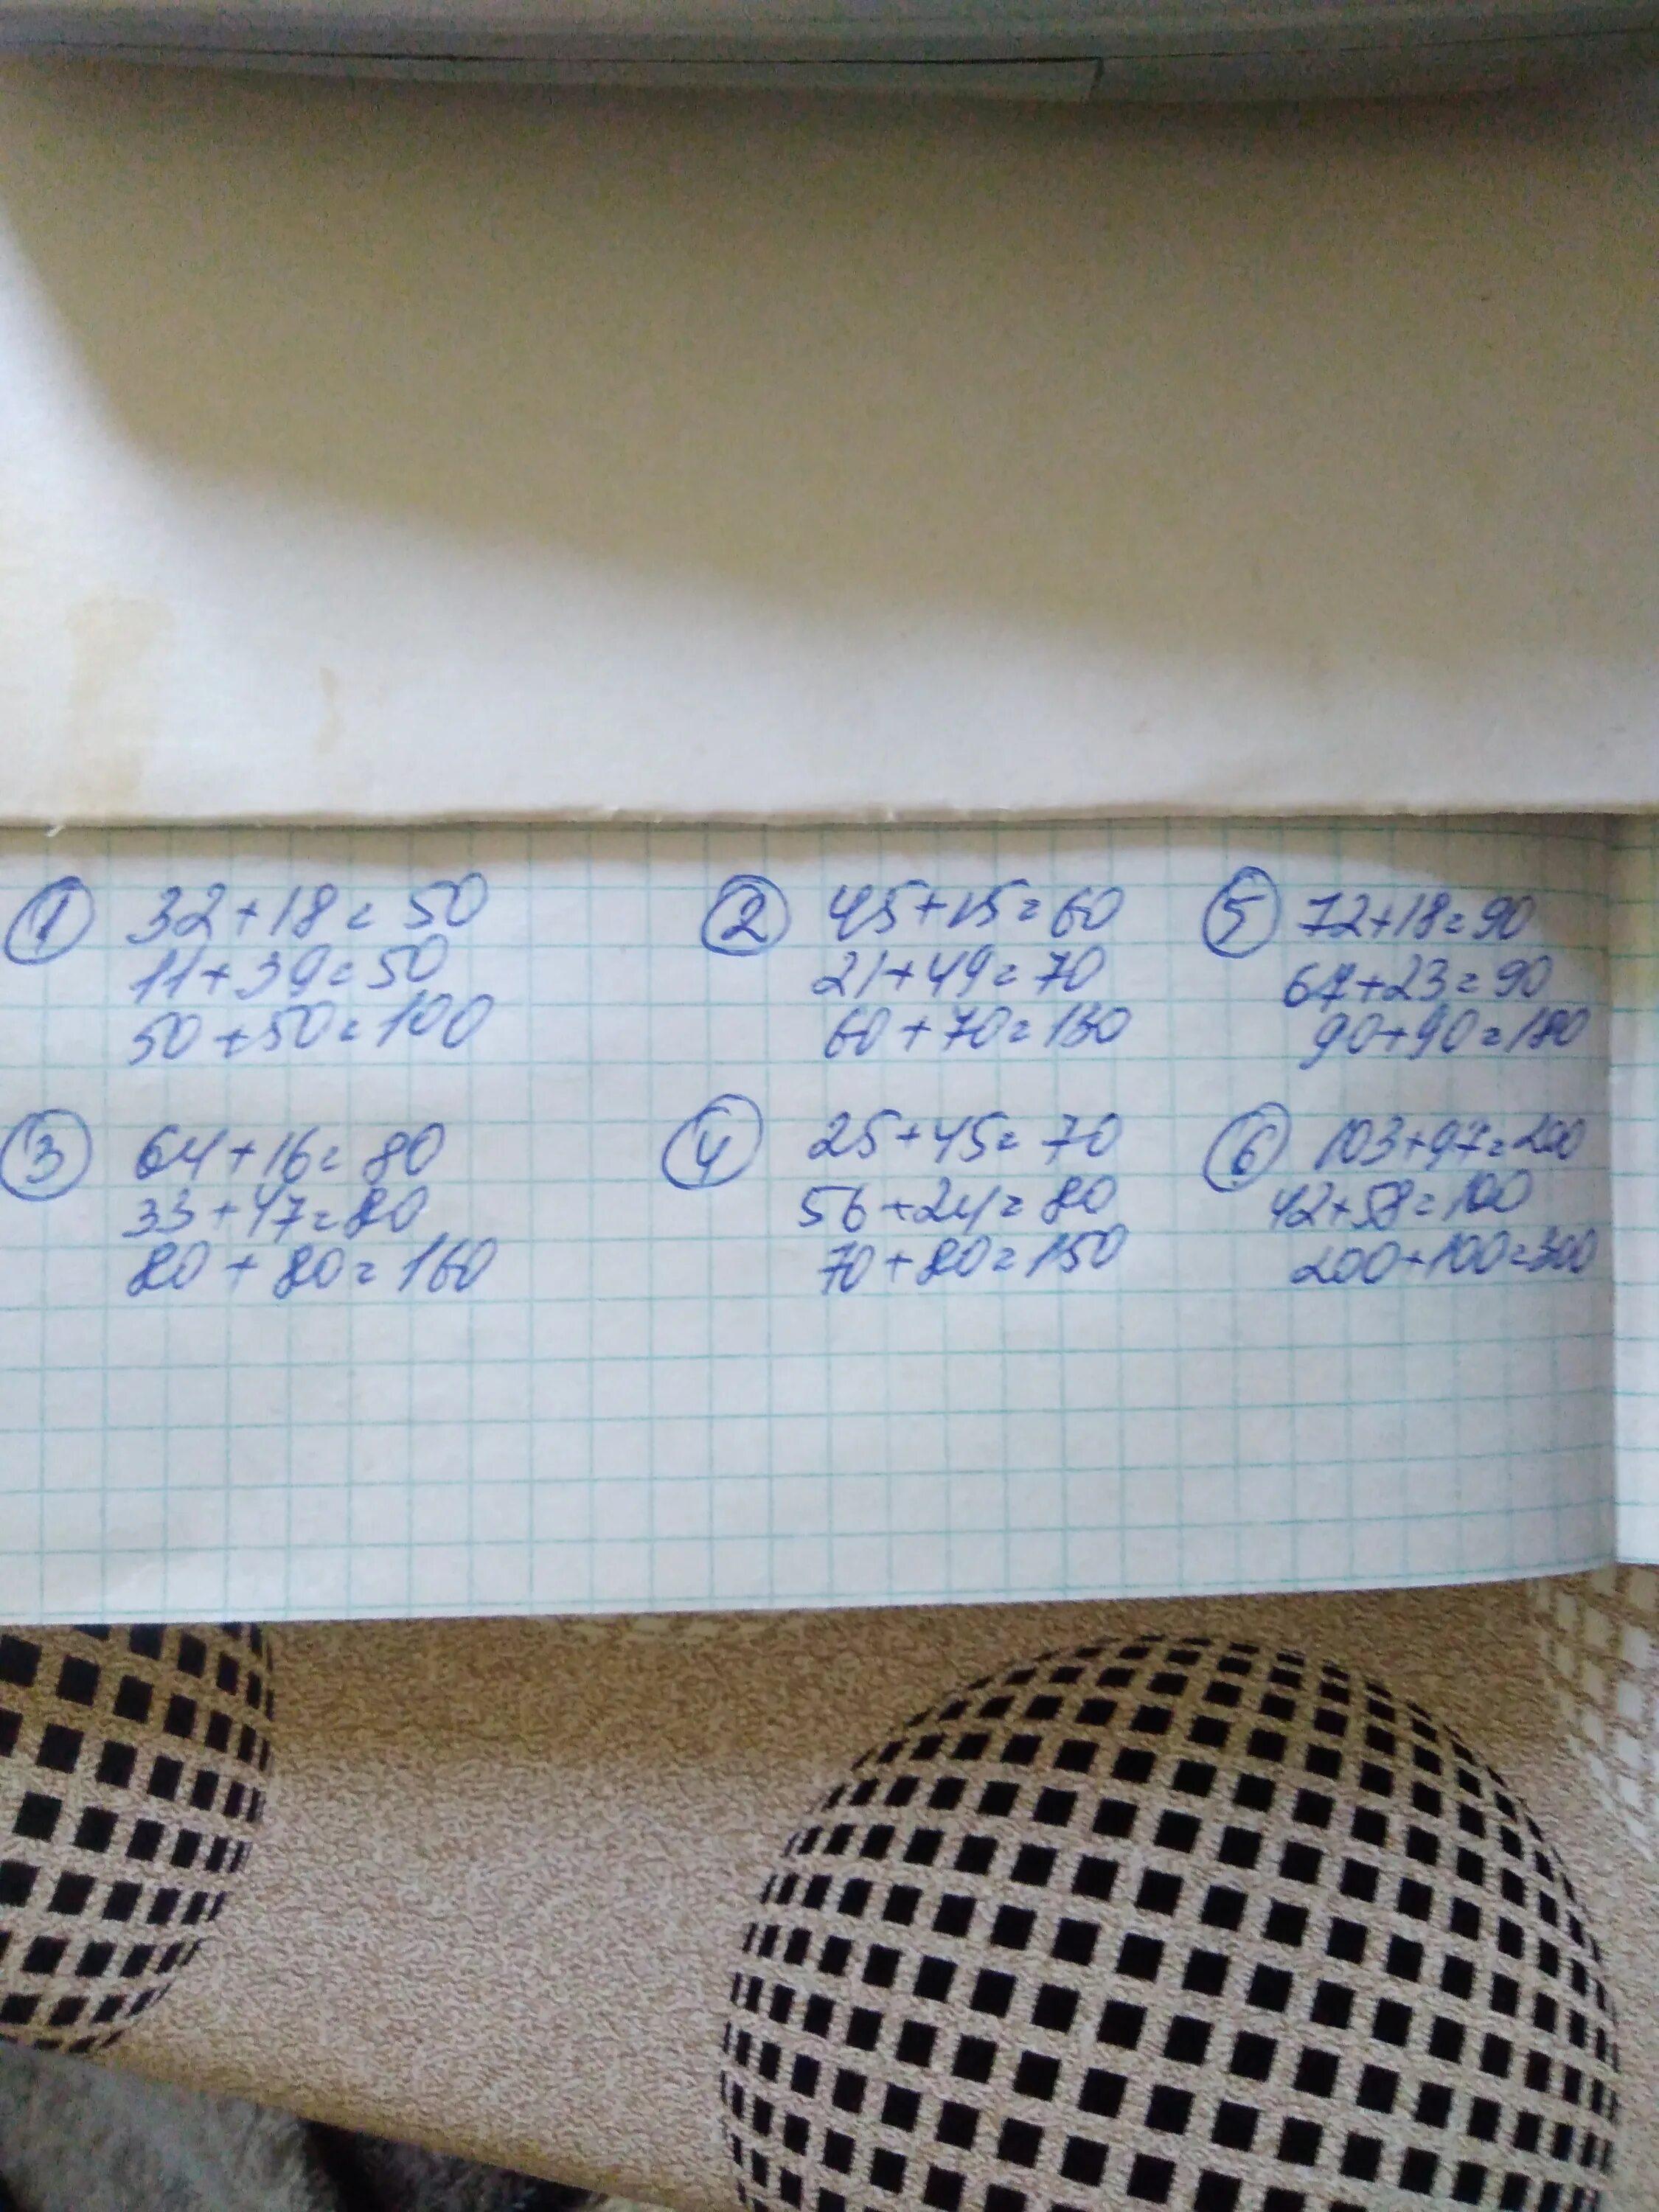 ① 32+18=50
11+39=50
50+50=100
② 45+15=60
21+49=70
60+70=130
⑤ 72+18=90
67+23=90
90+90=180
③ 64+16=80
33+47=80
80+80=160
④ 25+45=70
56+24=80
70+80=150
⑥ 103+97=200
42+58=100
200+100=300